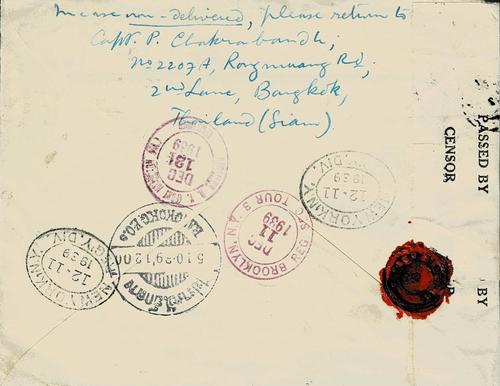 In case non-delivered, please return to
Capt. P. Chakrabandh,
No 2207A, Rongmuang Rd,
2nd Lane, Bangkok,
Thailand (Siam).
DEC
12
1939
NEW YORK, N.Y.
12-11
1939
REG'Y. DIV.
BROOKLYN,
DEC
11
1939
REG.
BANGKOK G.P.O.
NEW YORK, N.Y.
12-11
1939
REG'Y. DIV.
PASSED BY
CENSOR
BY